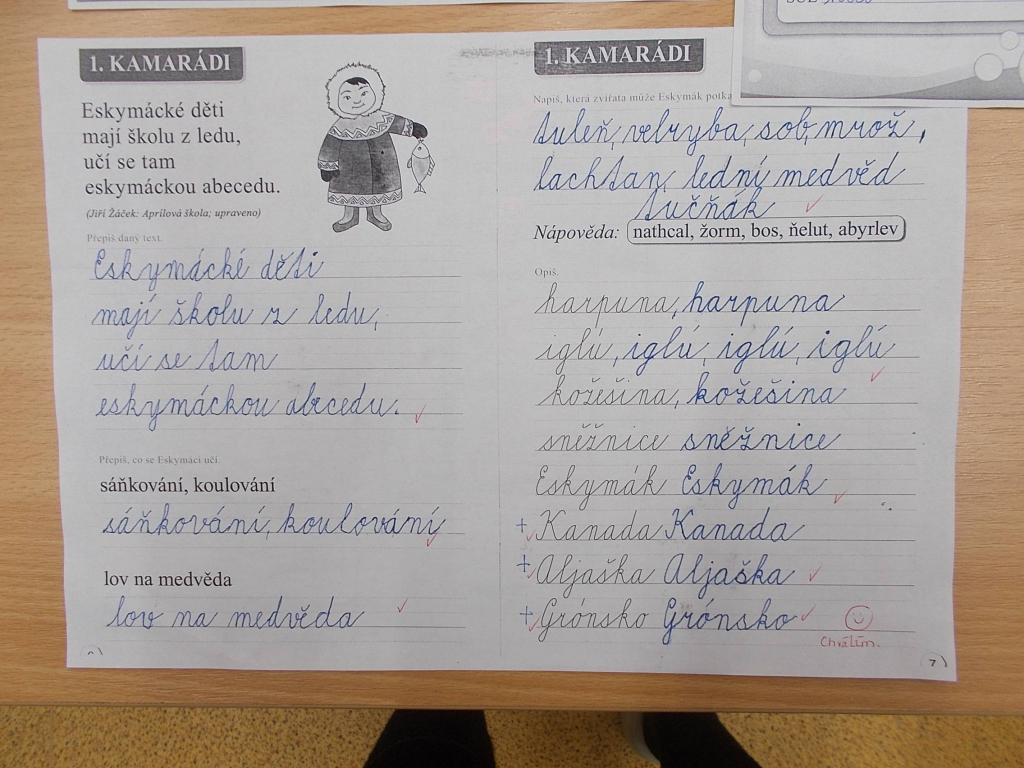 1. KAMARÁDI
Eskymácké děti
mají školu z ledu,
učí se tam
eskymáckou abecedu.
(Jiří Žáček: Aprílová škola; upraveno)
Přepiš daný text.
Eskymácké děti
mají školu z ledu,
učí se tam
eskymáckou abecedu.
Přepiš, co se Eskymáci učí.
sáňkování, koulování
sáňkování, koulování
lov na medvěda
lov na medvěda
1. KAMARÁDI
Napiš, která zvířata může Eskymák
tuleň, velryba, sob, mrož,
lachtan, lední medvěd
tučňák
Nápověda: nathcal, žorm, bos, ňelut, abyrlev
Opiš.
harpuna, harpuna
iglú, iglú, iglú, iglú
kožešina, kožešina
sněžnice sněžnice
Eskymák Eskymák
+ Kanada Kanada
+ Aljaška Aljaška
+ Grónsko Grónsko
Chválím.
7